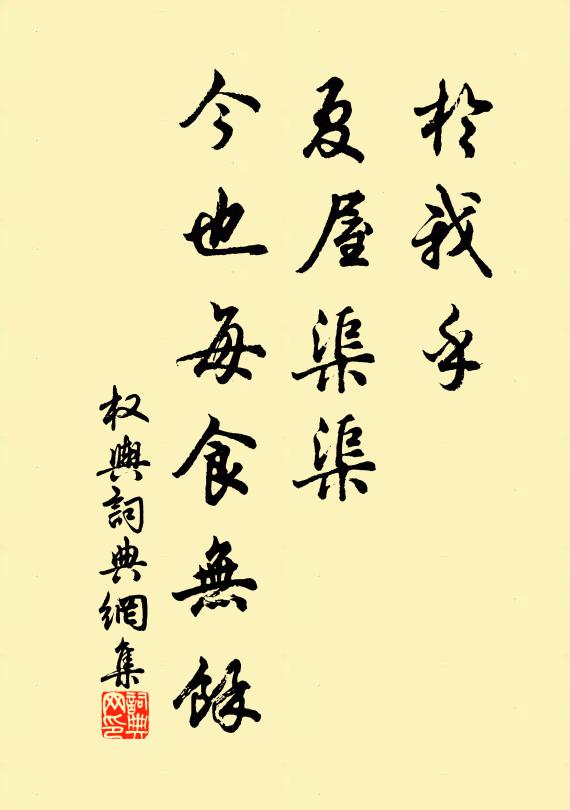 於我乎
夏屋渠渠
今也每食無餘
权輿詞典網集
詞典网印